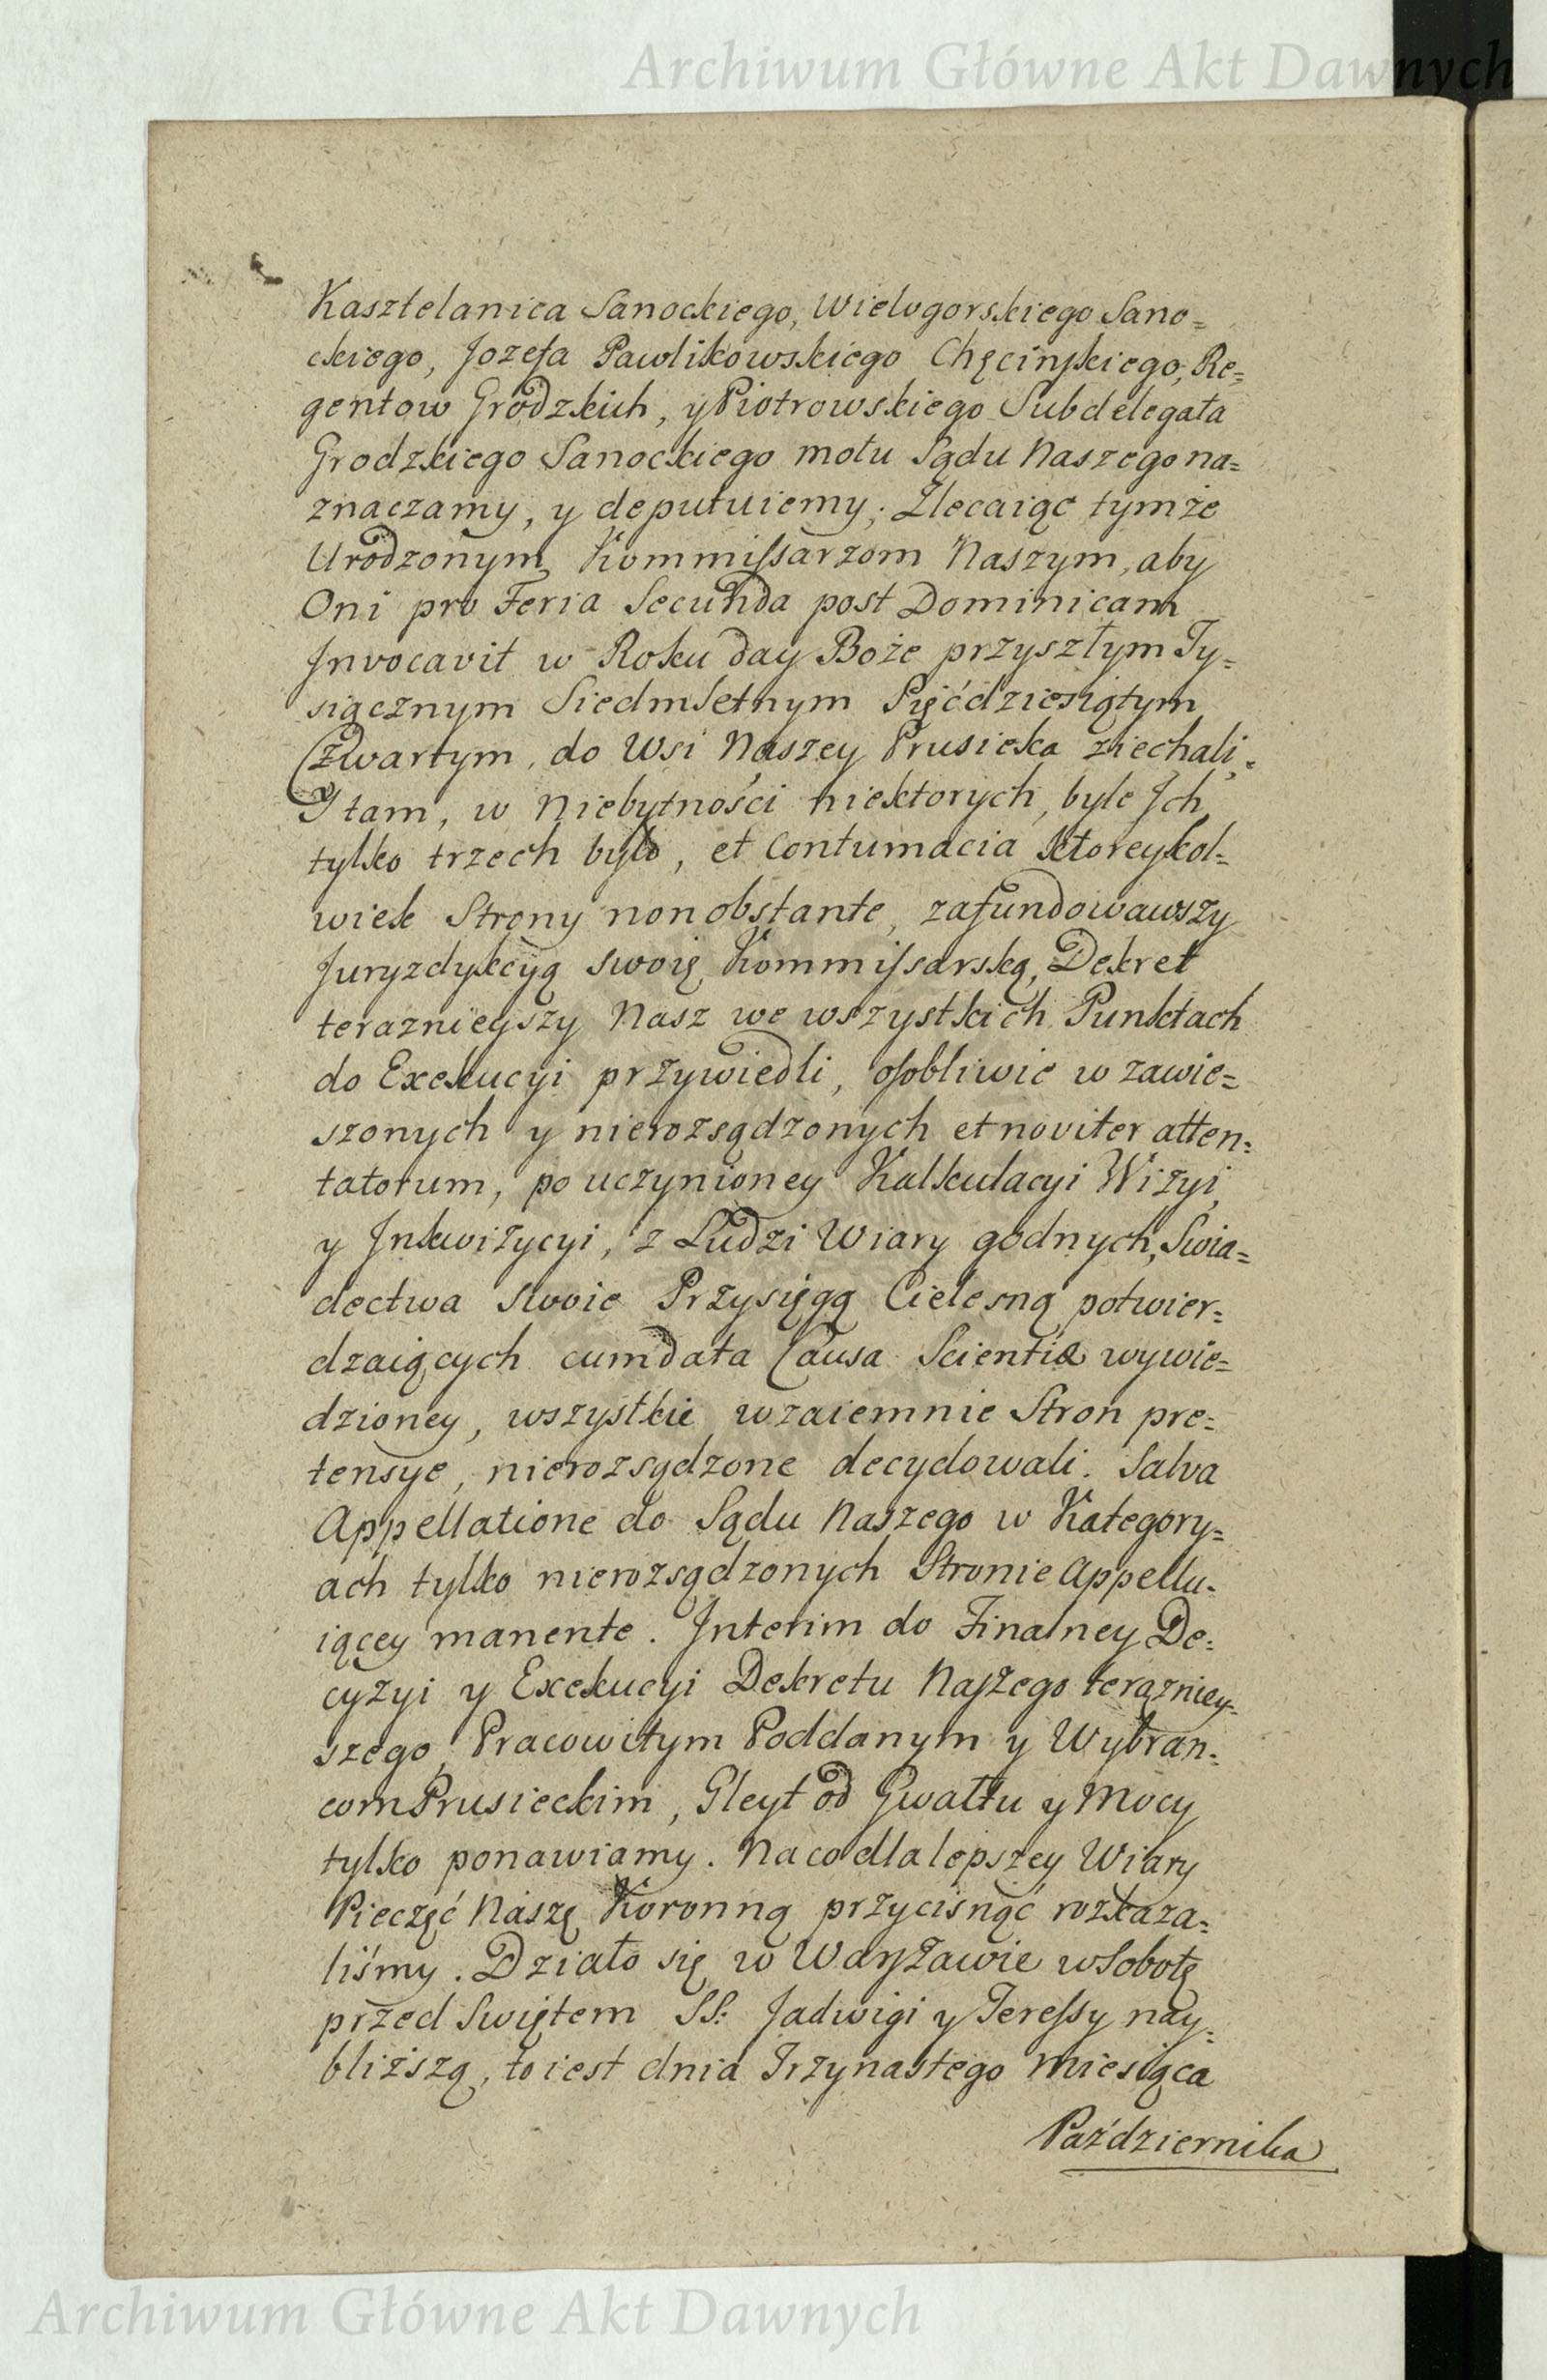 Archiwum Główne Akt Dawnych
Kasztelanica Sanockiego, Wielogorskiego Sano=
ckiego, Jozefa Pawlikowskiego Chęcinskiego, Re=
gentow Grodzkich, y Piotrowskiego Subdelegata
Grodzkiego Sanockiego motu Sądu Naszego na=
znaczamy, y deputuiemy; Zlecaiąc tymże
Urodzonym Kommissarzom Naszym, aby
Oni pro Feria Secunda post Dominicam
Invocavit w Roku day Boże przyszłym Ty=
siącznym Siedmsetnym Pięćdziesiątym
Czwartym, do Wsi Naszey Prusieka ziechali,
Y tam, w Niebytności niektorych, byle Ich
tylko trzech było, et Contumacia ktoreykol=
wiek Strony non obstante, zafundowawszy
Juryzdykcyą swoię Kommissarską, Dekret
terazniejszy Nasz we wszystkich Punktach
do Exekucyi przywiedli, osobliwie w zawie=
szonych y nierozsądzonych et noviter atten=
tatorum, po uczynioney Kalkulacyi Wizyi
y Inkwizycyi, z Ludzi Wiary godnych, Swia=
dectwa swoie Przysięgą Cielesną potwier=
dzaiących cum data Causa Scientiæ wywie=
dzioney, wszystkie wzaiemnie Stron pre=
tensye, nierozsądzone decydowali. Salva
Appellatione do Sądu Naszego w Kategory=
ach tylko nierozsądzonych Stronie Appellu=
iącey manente. Interim do Finalney De=
cyzyi y Exekucyi Dekretu Naszego terazniey=
szego, Pracowitym Poddanym y Wybran=
com Prusieckim, Gleyt od Gwałtu y Mocy
tylko ponawiamy. Na co dla lepszey Wiary
Pieczęć Naszę Koronną przycisnąć rozkaza=
liśmy. Działo się w Warszawie w Sobotę
przed Swiętem SS: Jadwigi y Teressy nay=
bliższą, to iest dnia Trzynastego Miesiąca
Października
Archiwum Główne Akt Dawnych